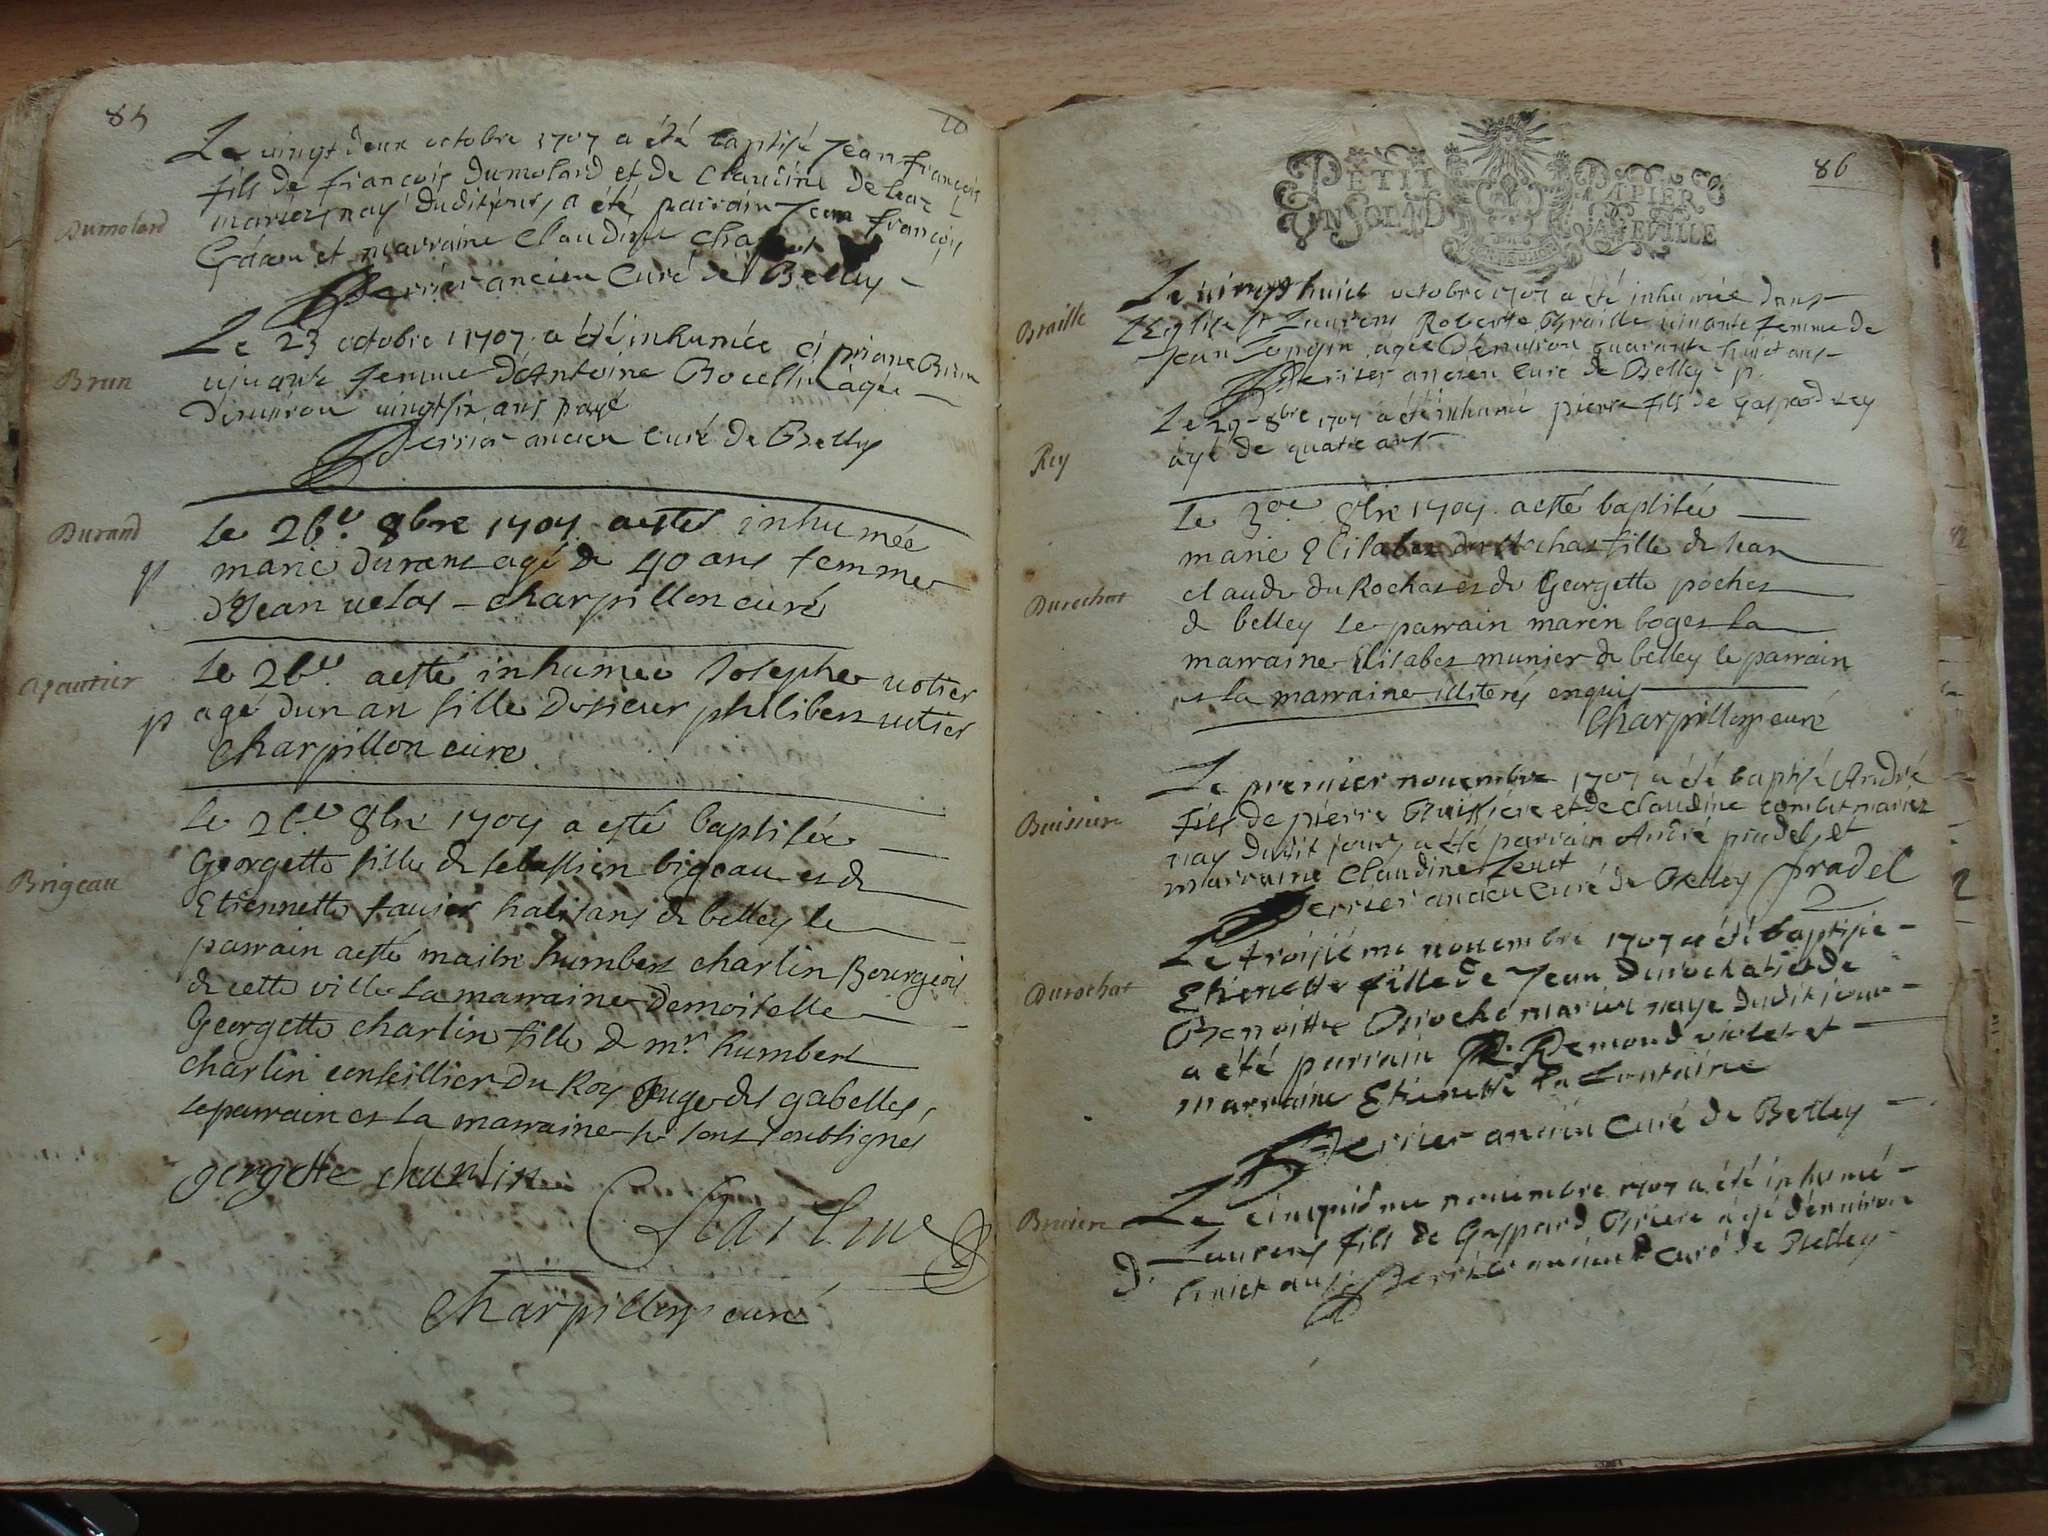 85
Le vingt deux octobre 1707 a été baptisé Jean françois
fils de françois Dumolard et de Claudine
mariez, nay duditjour, a été parrain Jean françois
et marraine Claudine
Derrier ancien Curé de Belley
Dumolard
Le 23 octobre 1707 a été inhumée Brun
vivante femme d'Antoine âgée
d'environ vingtsix ans payé
Derrier ancien Curé de Belley
Brun
Le 26e 8bre 1707 aesté inhumée
marie durant agé de 40 ans femme
d'Jean - charpillon curé
Durand
Le 26e aesté inhumée Josephe
age dun an fille Dusieur philibert
Charpillon cure
Le 26e 8bre 1707 a esté baptisée
Georgette fille de sebastien bigeau et de
Etiennette habitans de belley le
parrain aesté maitre humbert charlin Bourgeois
de cette ville La marraine Demoiselle
Georgette charlin fille de mr humbert
charlin conseillier Du Roy Juge des gabelles,
le parrain et La marraine se sont soubsignés
Brigeau
gergette charlin
Charpillon curé
86
PETIT PAPIER
UN SOL LA FEUILLE
Le vingt huict octobre 1707 a été inhumée dans
L'Eglise St Laurens Roberte Braille vivante femme de
Jean agée d'environ quarante huict ans
Derrier ancien Curé de Belley p.
Braille
Le 29 8bre 1707 a été inhumé pierre fils de Gaspard Rey
âgé de quatre ans
Rey
Le 30e 8bre 1707 aesté baptisée
marie Elisabet du Rochat fille de Jean
claude du Rochat et de Georgette pochet
de belley Le parrain marin boget La
marraine Elisabet munier de belley le parrain
et la marraine illiterés enquis
Charpillon curé
Durochat
Le premier novembre 1707 a été baptisé André
fils de pierre Buissiere et de Claudine mariez
nay dudit jour, a été parrain André pradel, et
marraine Claudine
Derrier ancien Curé de Belley pradel
Buissiere
Le troisiéme novembre 1707 a été baptisée
Etienette fille de Jean Durochat et de
Benoitte mariez naye dudit jour
a été parrain Remond violet et
marraine Etienette la fontaine
Derrier ancien Curé de Belley
Durochat
Le cinquiéme novembre 1707 a été inhumé
Laurens fils de Gaspard agé d'environ
huict ans Derrier ancien Curé de Belley